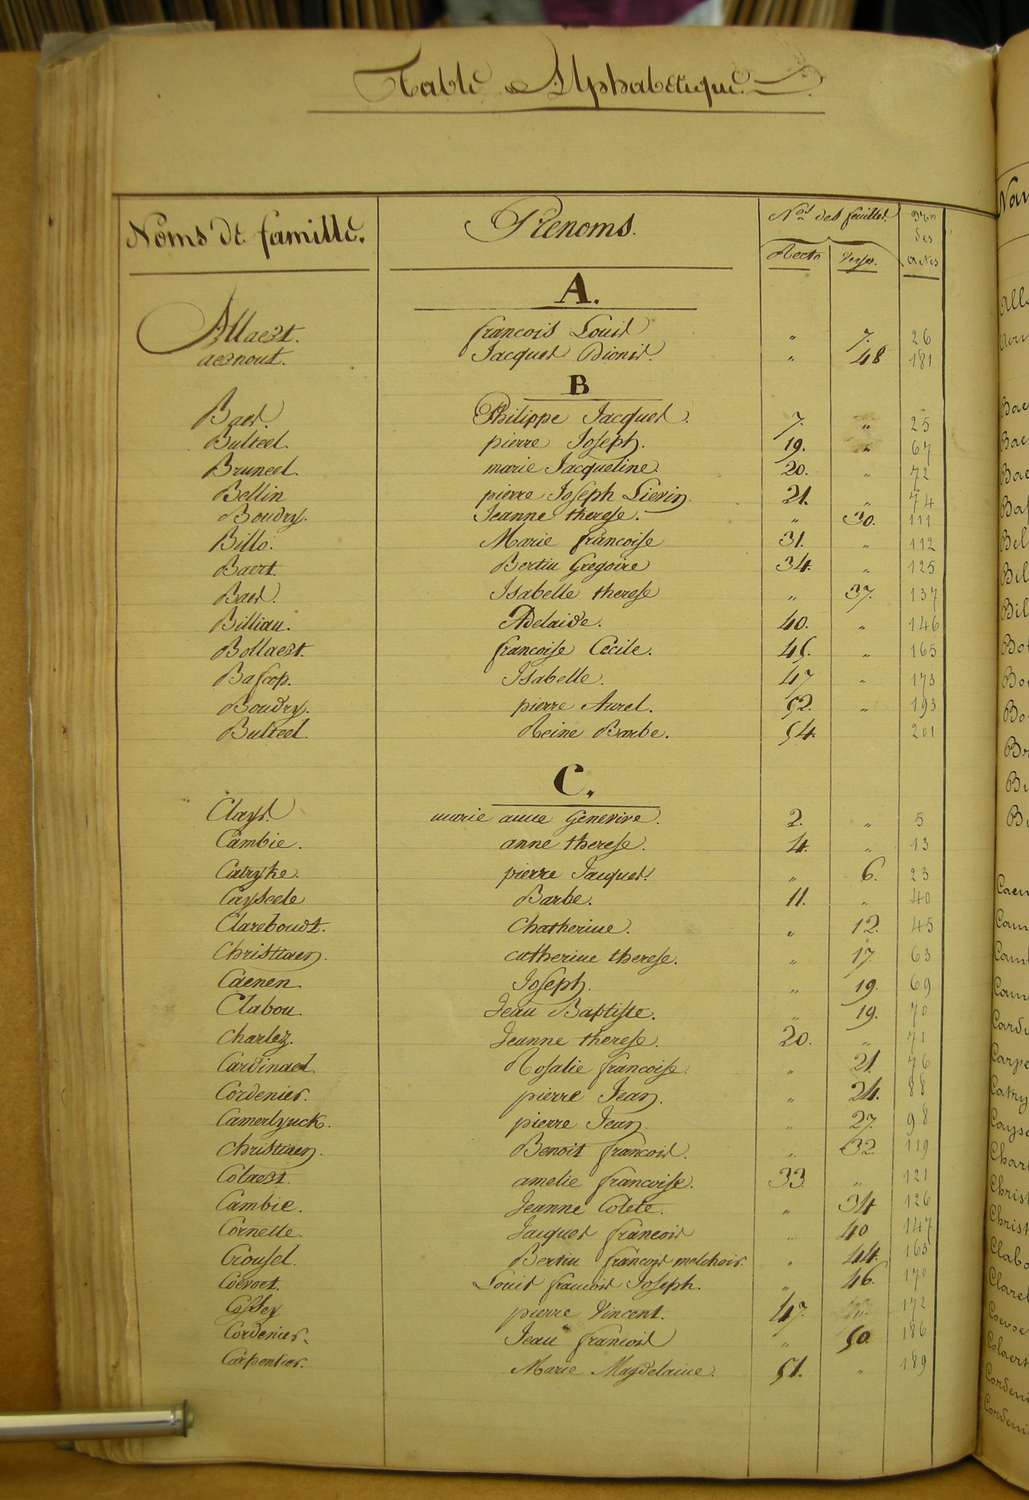 Table Alphabétique.
Noms de famille. Prenoms. Nos des feuillets. Nos des actes
Recto Verso.
A.
Allaert. francois Louis " 7. 26
aernout. Jacques Dionis. " 48 181
B
Baes. Philippe Jacques. 7. " 25
Bulteel. pierre Joseph. 19. " 67
Bruneel. marie Jacqueline 20. " 72
Bellin pierre Joseph Lievin 21. " 74
Boudry. Jeanne therese. " 30. 111
Billo. Marie francoise 31. " 112
Baert. Bertin Gregoire 34. " 125
Baes. Isabelle therese " 37. 137
Billiau. Adelaide. 40. " 146
Bollaert. francoise Cécile. 45. " 165
Bascop. Isabelle. 47 " 173
Boudry. pierre Aurel. 52. " 193
Bulteel Reine Barbe. 54. 201
C.
Clays. marie anne Genevive. 2. " 5
Cambie. anne therese. 4. " 13
Catryke. pierre Jacques. " 6. 23
Cayseele Barbe. 11. " 40
Clareboudt. Chatherine. " 12. 45
Christiaen. catherine therese. " 17. 63
Caenen Joseph. " 19. 69
Clabou. Jean Baptiste. " 19. 70
Charlez. Jeanne therese. 20. " 71
Cardinael. Rosalie francoise. " 21. 76
Cordenier. pierre Jean. " 24. 88
Camerlynck. pierre Jean. " 27. 98
christiaen. Benoit francois. " 32 119
Colaert. amelie francoise. 33. " 121
Cambie. Jeanne Colete. " 34 126
Cornette. Jacques francois " 40 147
Crousel. Bertin françois melchior. " 44. 163
Coevoet. Louis francois Joseph. " 46. 170
Cossey pierre Vincent. 47. 172
Cordenier. Jean francois " 50. 186
Carpentier. Marie Magdelaine. 51. " 189